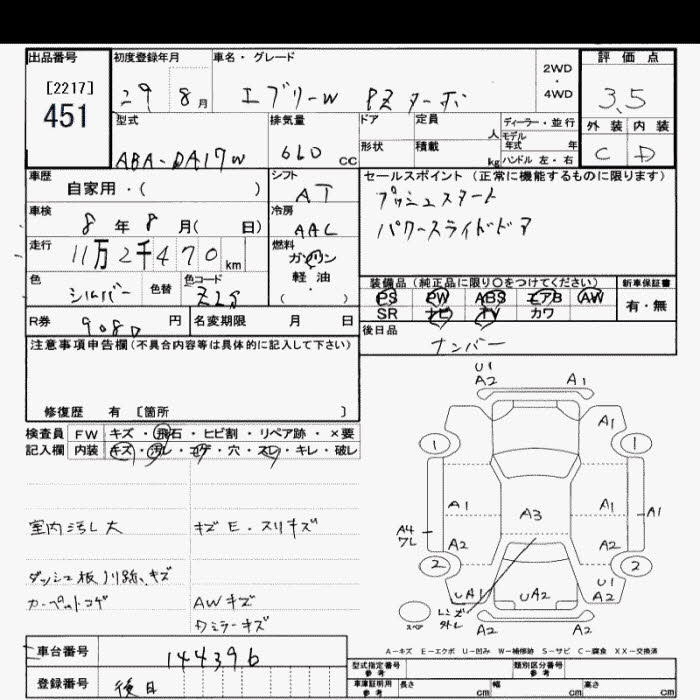 出品番号 初度登録年月 車名・グレード 評価点
[2217] 451
29 8月 エブリーW PZ ターボ 2WD・4WD 3.5
型式 排気量 ドア 定員 人 ディーラー・並行 外装 内装
形状 積載 kg モデル年式 年 ハンドル 左・右
ABA-DA17W 660 cc C D
車歴 自家用・( ) シフト AT
セールスポイント(正常に機能するものに限ります)
プッシュスタート
パワースライドドア
車検 8年8月( 日) 冷房 AAC
走行 11万2千470km 燃料 ガソリン 軽・油 ( )
色 シルバー 色替 色コード Z2S
装備品(純正品に限り○をつけてください) 新車保証書
PS PW ABS エアB AW 有・無
SR ナビ TV カワ
R券 9080円 名変期限 月 日
後日品 ナンバー
注意事項申告欄(不具合内容等は具体的に記入して下さい)
修復歴 有 [箇所 ]
検査員 FW キズ・飛石・ヒビ割・リペア跡・×要
記入欄 内装 キズ・汚レ・コゲ・穴・スレ・キレ・破レ
U1
A2 A1
A1
1 1
A1 A3 A1 A1
A4
ワレ
A2 A2
2 2
UA1 UA2 U1
A2
レンズ
外レ
スペア A2 A2
室内汚し大 キズE・スリキズ
ダッシュ板ノリ跡、キズ
カーペットコゲ AWキズ
Dミラーキズ
A-キズ E-エクボ U-凹み W-補修跡 S-サビ C-腐食 XX-交換済
車台番号 144396
型式指定番号 参考 類別区分番号 参考
登録番号 後日
車庫証明用 参考 長さ cm 幅 cm 高さ cm